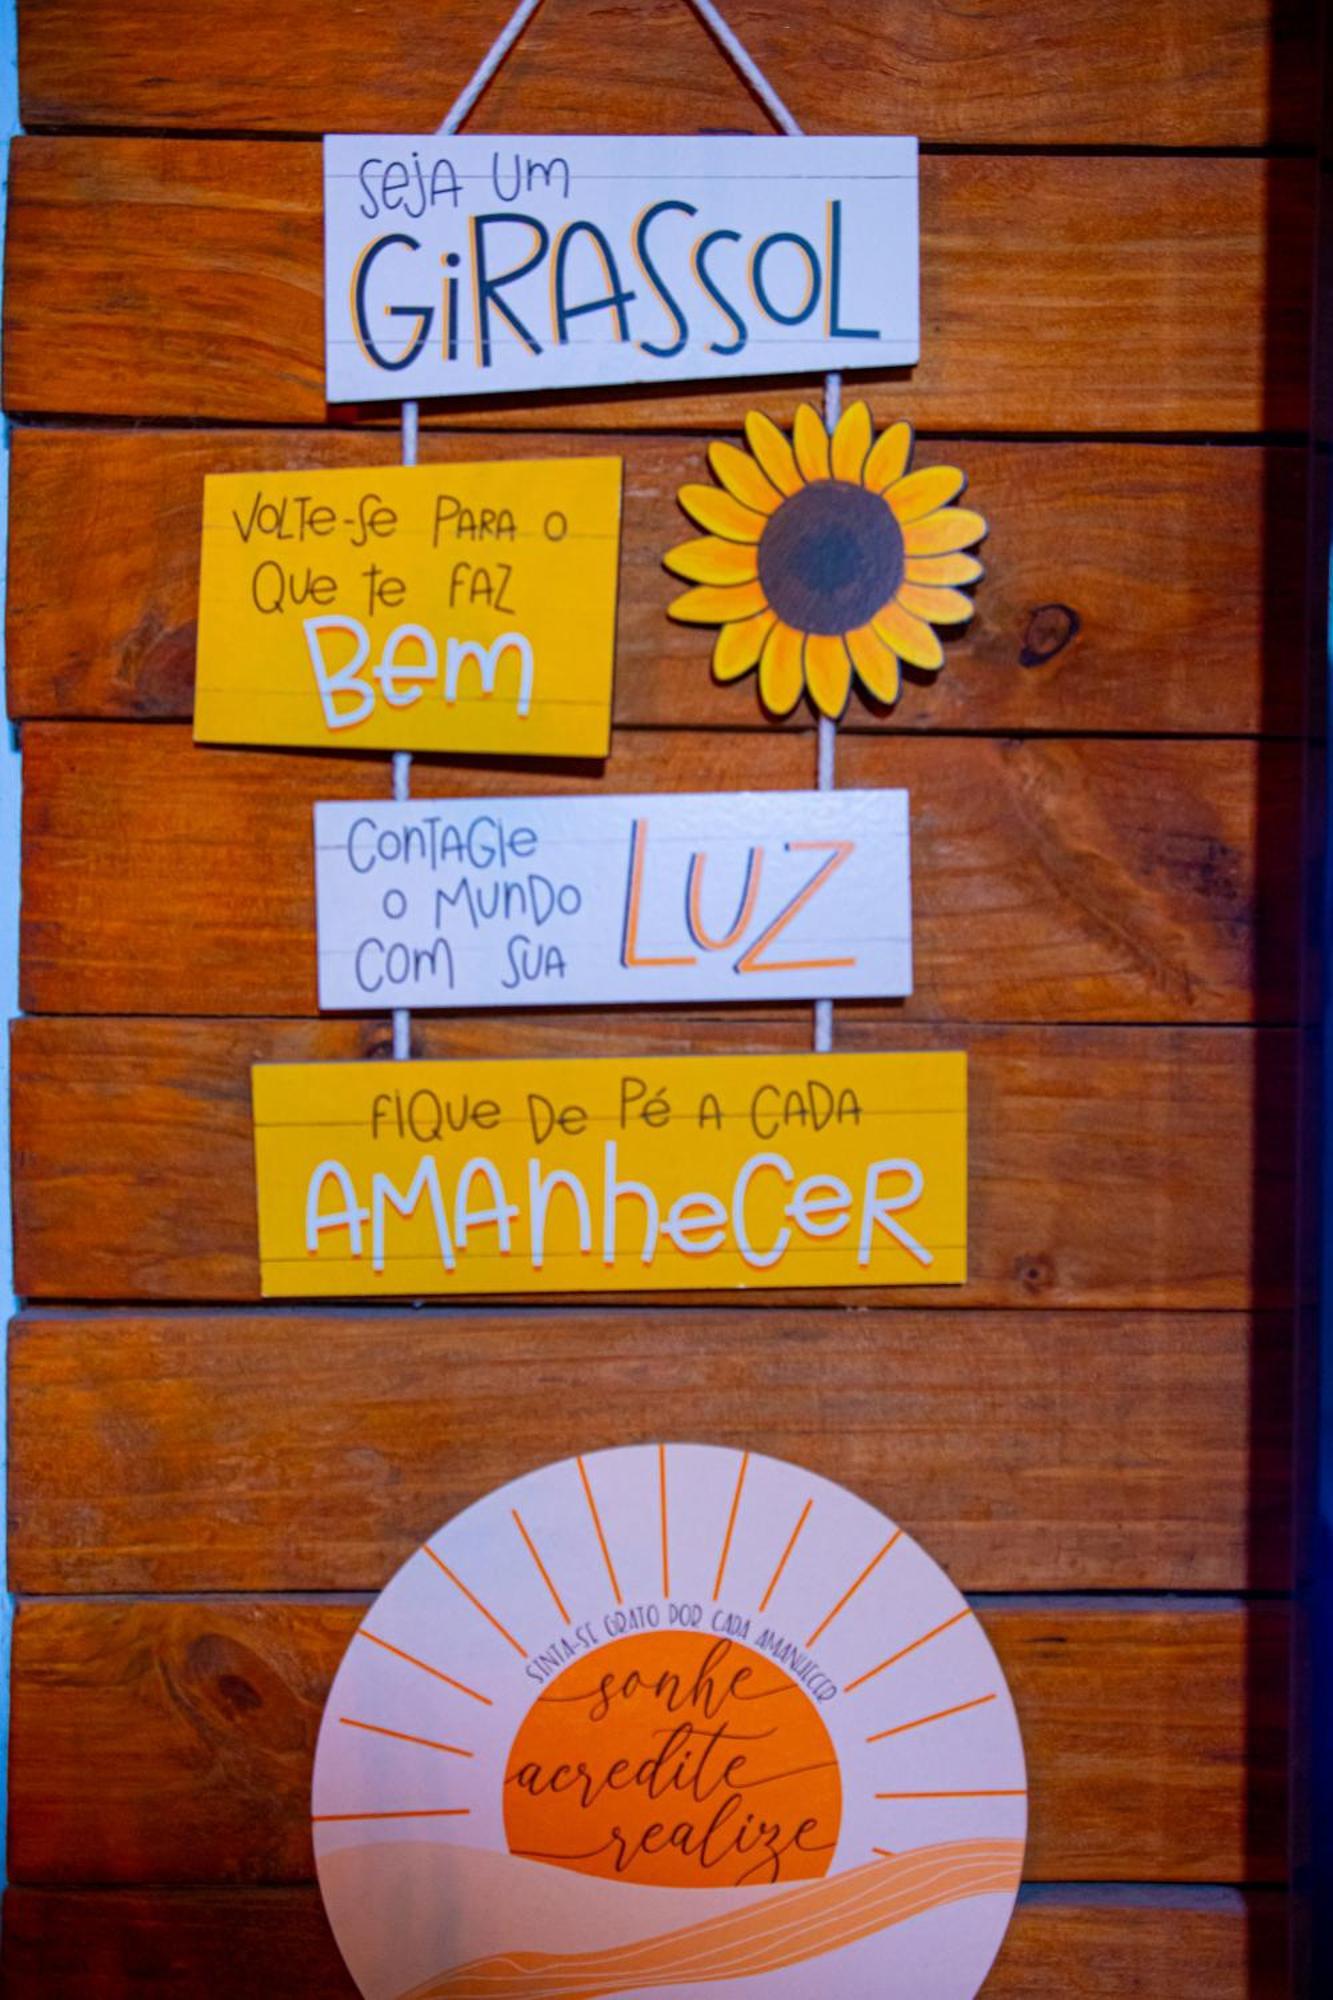 Seja um
GiRASSOL
VOLTe-Se PARA o
Que te FAZ
Bem
ConTAGIe
o MunDo
Com SUA
LUZ
FIQue De Pé A CADA
AMAnheCeR
SINTA-SE GRATO POR CADA AMANHECER
sonhe
acredite
realize